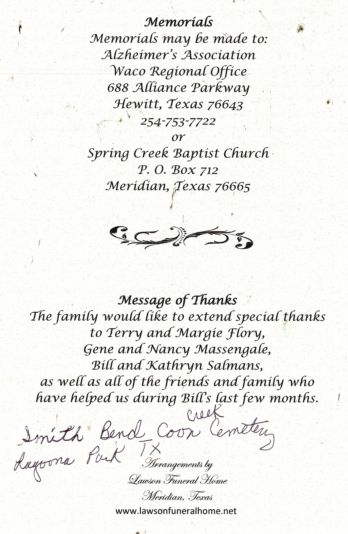 Memorials
Memorials may be made to:
Alzheimer's Association
Waco Regional Office
688 Alliance Parkway
Hewitt, Texas 76643
254-753-7722
or
Spring Creek Baptist Church
P. O. Box 712
Meridian, Texas 76665
Message of Thanks
The family would like to extend special thanks
to Terry and Margie Flory,
Gene and Nancy Massengale,
Bill and Kathryn Salmans,
as well as all of the friends and family who
have helped us during Bill's last few months.
creek
Smith Bend Coon Cemetery
Lagoona Park TX
Arrangements by
Lawson Funeral Home
Meridian, Texas
www.lawsonfuneralhome.net